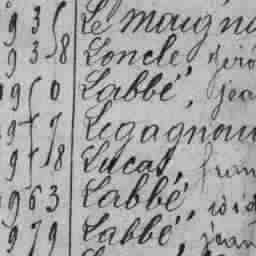 93 Le maign
938 Loncle, Jérô
0 Labbé, jea
Legagnou
98 Lucas, fran
963 Labbé
979 Labbé, jean